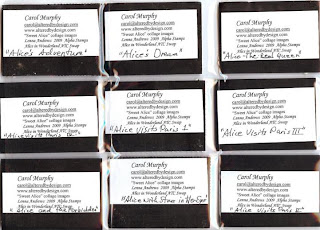 Carol Murphy
carol@alteredbydesign.com
"Sweet Alice" collage images
Leona Andrews 2009 Alpha Stamps
Alice in Wonderland ATC Swap
"Alice's Adventure"
Carol Murphy
carol@alteredbydesign.com
"Sweet Alice" collage images
Leona Andrews 2009 Alpha Stamps
Alice in Wonderland ATC Swap
"Alice's Dream"
Carol Murphy
carol@alteredbydesign.com
"Sweet Alice" collage images
Leona Andrews 2009 Alpha Stamps
Alice in Wonderland ATC Swap
"Alice The Real Queen"
Carol Murphy
carol@alteredbydesign.com
"Sweet Alice" collage images
Leona Andrews 2009 Alpha Stamps
Alice in Wonderland ATC Swap
"Alice Visits Paris
Carol Murphy
carol@alteredbydesign.com
"Sweet Alice" collage images
Leona Andrews 2009 Alpha Stamps
Alice in Wonderland ATC Swap
"Alice Visits Paris I"
Carol Murphy
carol@alteredbydesign.com
"Sweet Alice" collage images
Leona Andrews 2009 Alpha Stamps
Alice in Wonderland ATC Swap
"Alice Visits Paris III"
Carol Murphy
carol@alteredbydesign.com
"Sweet Alice" collage images
Leona Andrews 2009 Alpha Stamps
Alice in Wonderland ATC Swap
"Alice and the Forbidden
Carol Murphy
carol@alteredbydesign.com
"Sweet Alice" collage images
Leona Andrews 2009 Alpha Stamps
Alice in Wonderland ATC Swap
"Alice with Stars in Her Eyes"
Carol Murphy
carol@alteredbydesign.com
"Sweet Alice" collage images
Leona Andrews 2009 Alpha Stamps
Alice in Wonderland ATC Swap
"Alice Visits Paris II"